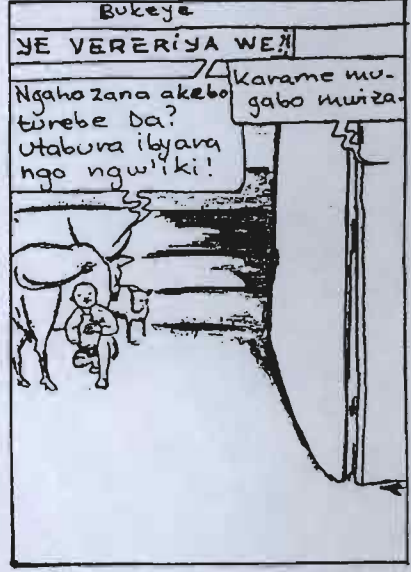 Bukeye
YE VERERIYA WE?!
Ngaho zana akebo
turebe Da?
utabura ibyara
ngo ngw'iki!
Karame mu-
gabo mwiza.